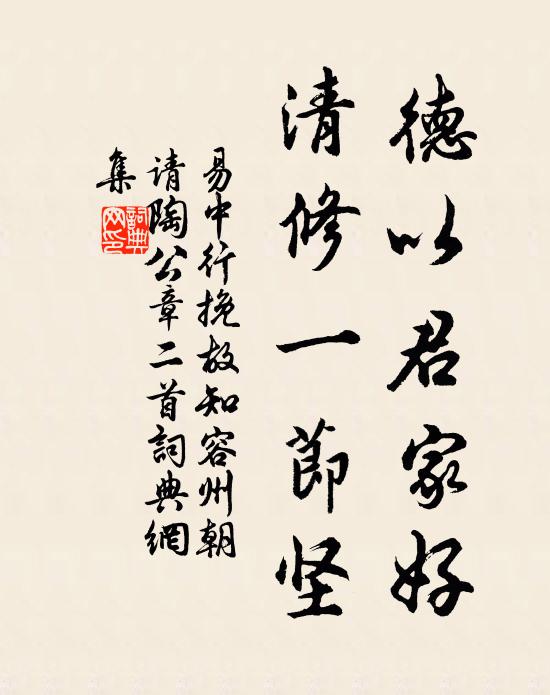 德以君家好
清修一節坚
易中行挽故知容州朝
请陶公章二首詞典網
集
詞典
网印